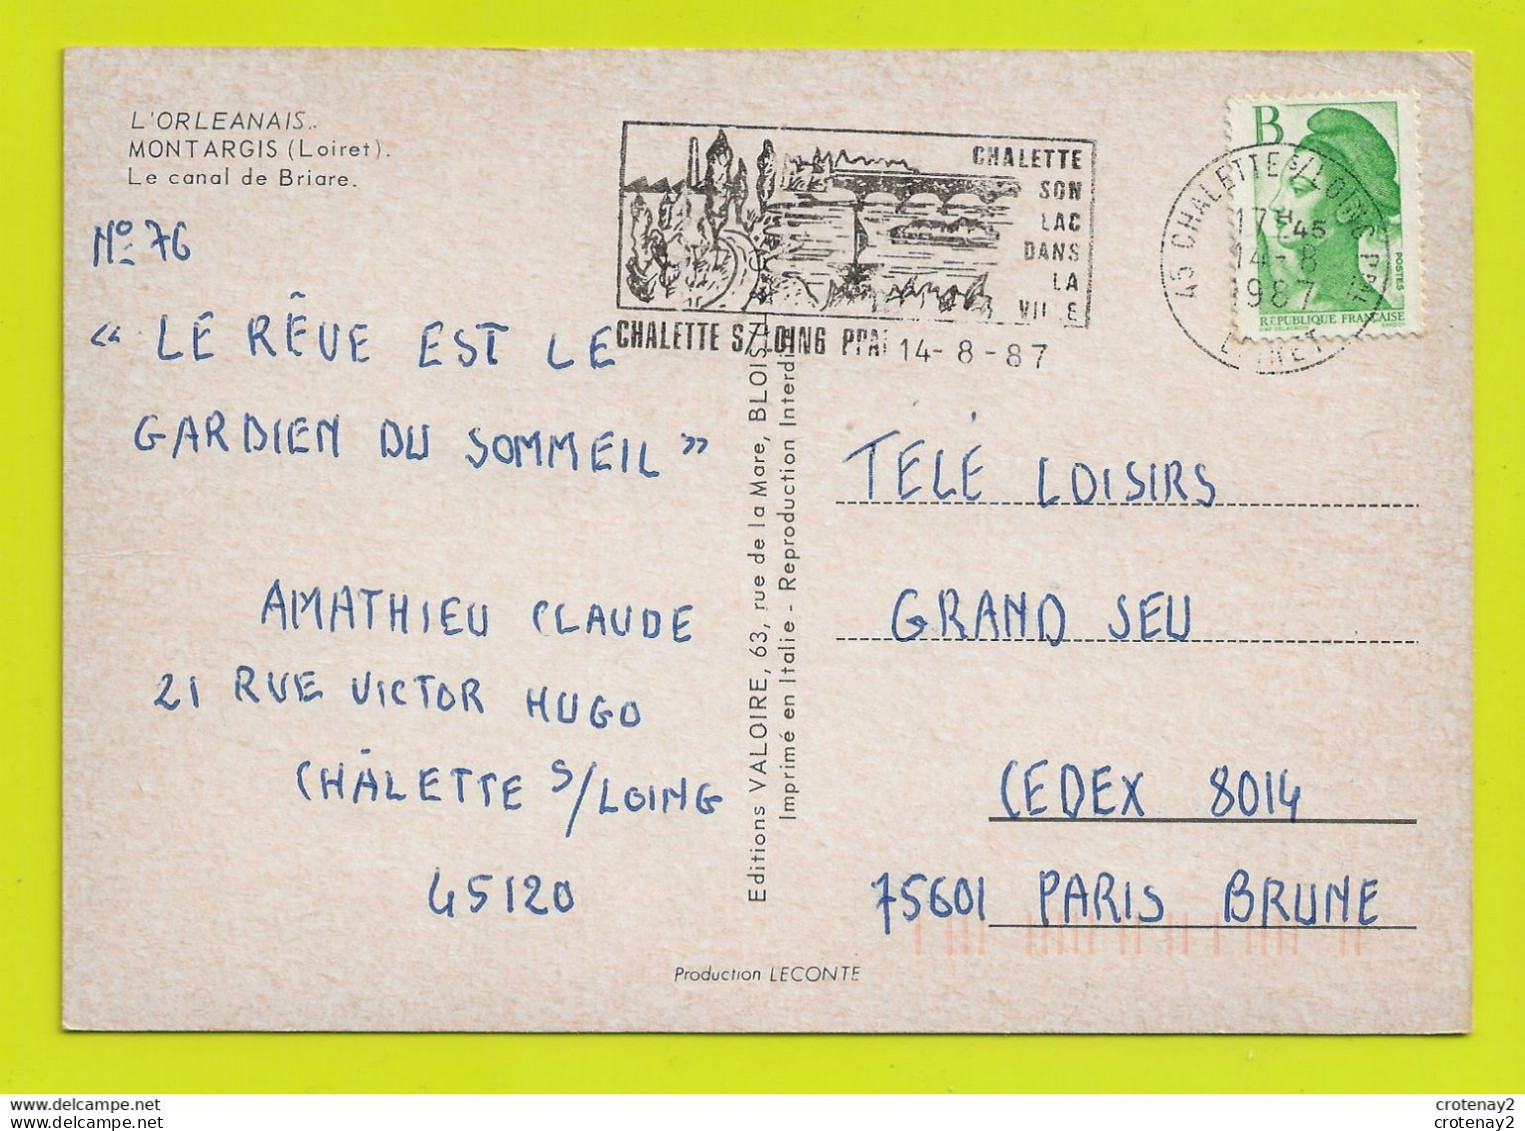 L'ORLEANAIS..
MONTARGIS (Loiret).
Le canal de Briare.
No 76
« LE RÊVE EST LE
GARDIEN DU SOMMEIL »
AMATHIEU CLAUDE
21 RUE VICTOR HUGO
CHÂLETTE S/LOING
45120
CHALETTE
SON
LAC
DANS
LA
VILLE
CHALETTE S/LOING PPAL 14-8-87
45 CHALETTE S/LOING PPAL
17H45
14-8
1987
LOIRET
B
POSTES
REPUBLIQUE FRANÇAISE
Editions VALOIRE, 63, rue de la Mare, BLOIS
Imprimé en Italie - Reproduction Interdi
TÉLÉ LOISIRS
GRAND SEU
CEDEX 8014
75601 PARIS BRUNE
Production LECONTE
crotenay2
crotenay2
crotenay2
crotenay2